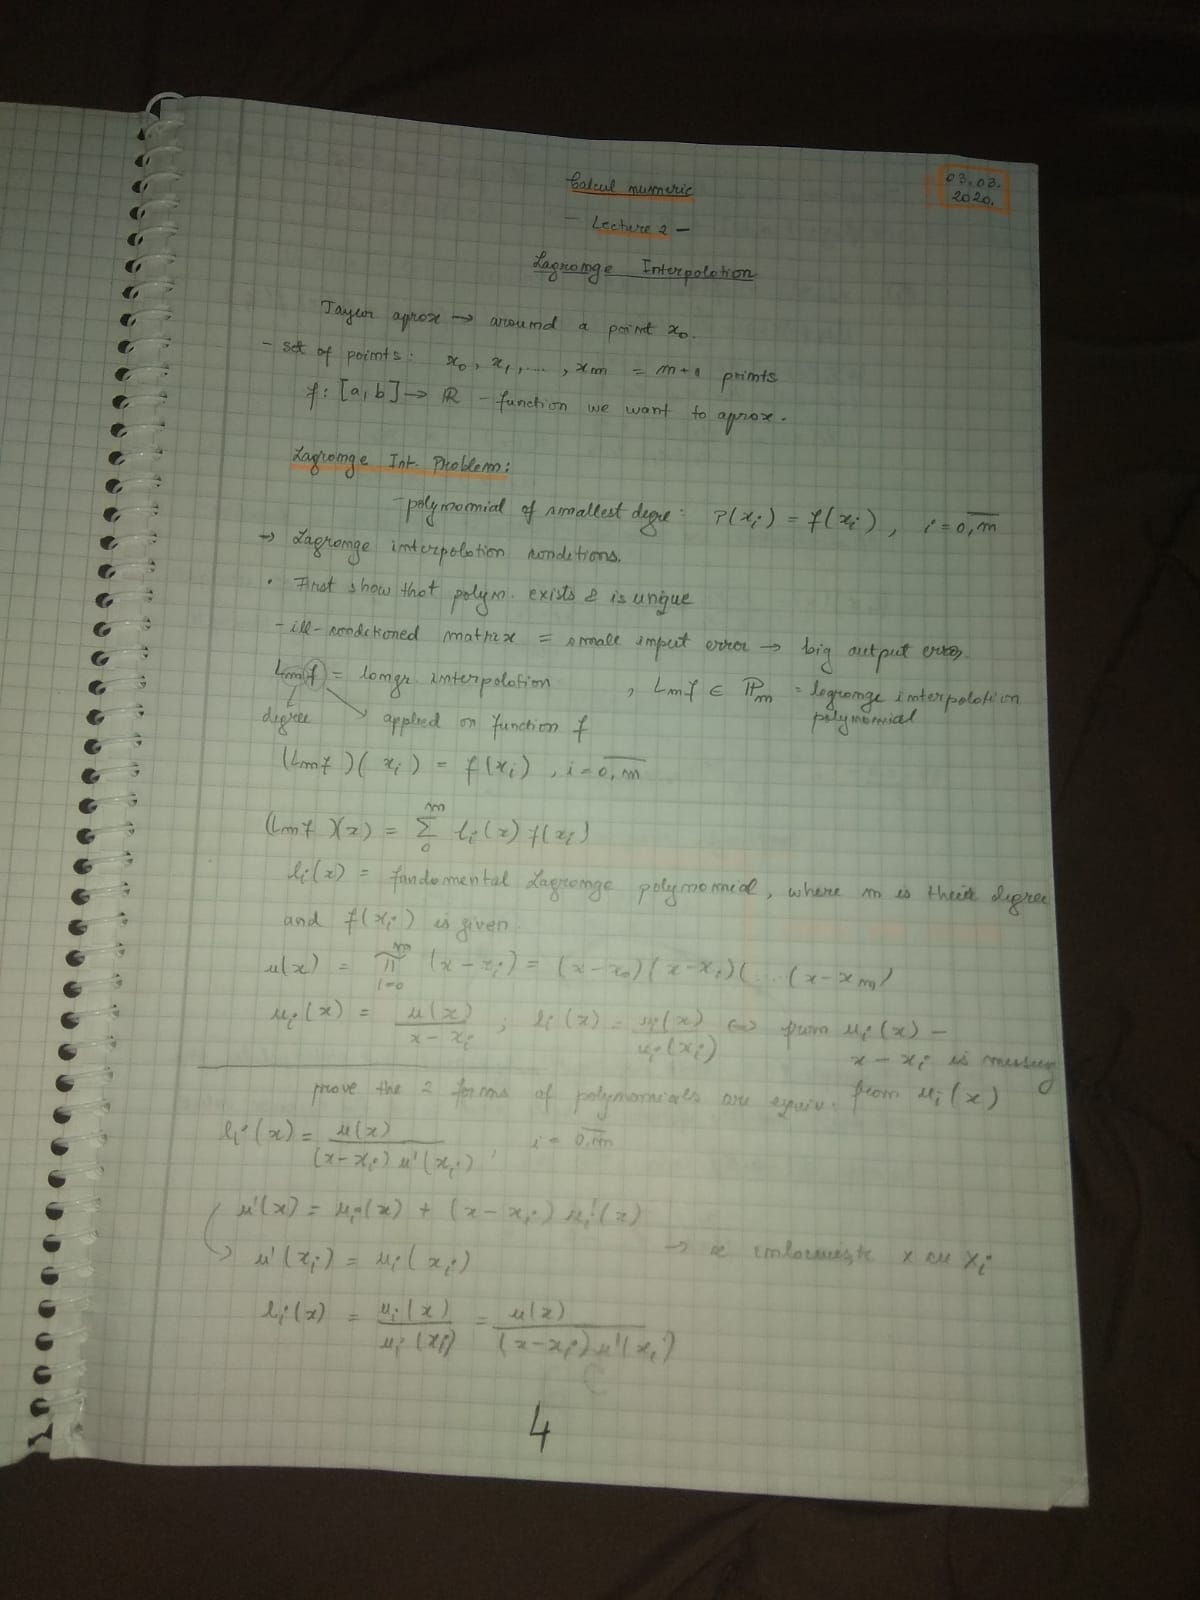 Calcul numeric
03.03.
2020.
- Lecture 2 -
Lagrange Interpolation
Taylor aprox → around a point x₀.
- set of points: x₀, x₁, ..., xm = m+1 points
f: [a,b] → ℝ - function we want to aprox.
Lagrange Int. Problem:
- polynomial of smallest degre: P(xᵢ) = f(xᵢ), i = 0,m
→ Lagrange interpolation conditions.
• First show that polyn. exists & is unique
- ill-conditioned matrix = small input error → big output error
Lmf = longr. interpolation , Lmf ∈ ℙm = lagrange interpolation
degree → applied on function f polynomial
(Lmf)(xᵢ) = f(xᵢ), i = 0,m
(Lmf)(x) = Σ₀ᵐ lᵢ(x) f(xᵢ)
lᵢ(x) = fundamental Lagrange polynomial, where m is their degree
and f(xᵢ) is given.
u(x) = ∏ᵢ₌₀ᵐ (x-xᵢ) = (x-x₀)(x-x₁)(...(x-xm)
uᵢ(x) = u(x)/(x-xᵢ) ; lᵢ(x) = uᵢ(x)/uᵢ(xᵢ) ⇔ from uᵢ(x) -
x-xᵢ is missing
prove the 2 forms of polynomials are equiv. from uᵢ(x)
lᵢ(x) = u(x)/((x-xᵢ)u'(xᵢ)), i = 0,m
u'(x) = uᵢ(x) + (x-xᵢ)uᵢ'(x)
u'(xᵢ) = uᵢ(xᵢ) → x cu xᵢ
lᵢ(x) = uᵢ(x)/uᵢ(xᵢ) = u(x)/((x-xᵢ)u'(xᵢ))
4